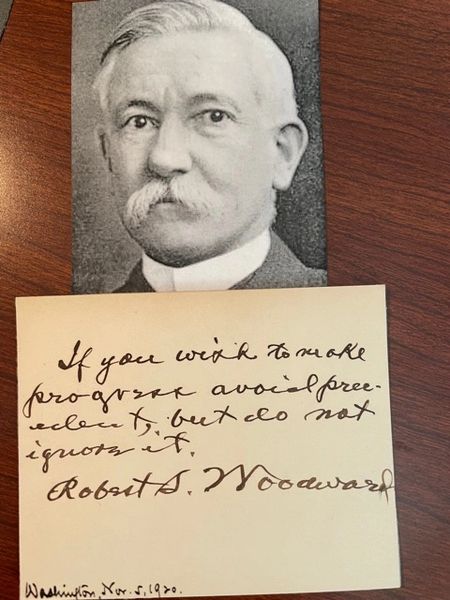 If you wish to make
progress avoid prec-
edent, but do not
ignore it.
Robert S. Woodward
Washington, Nov. 5, 1920.